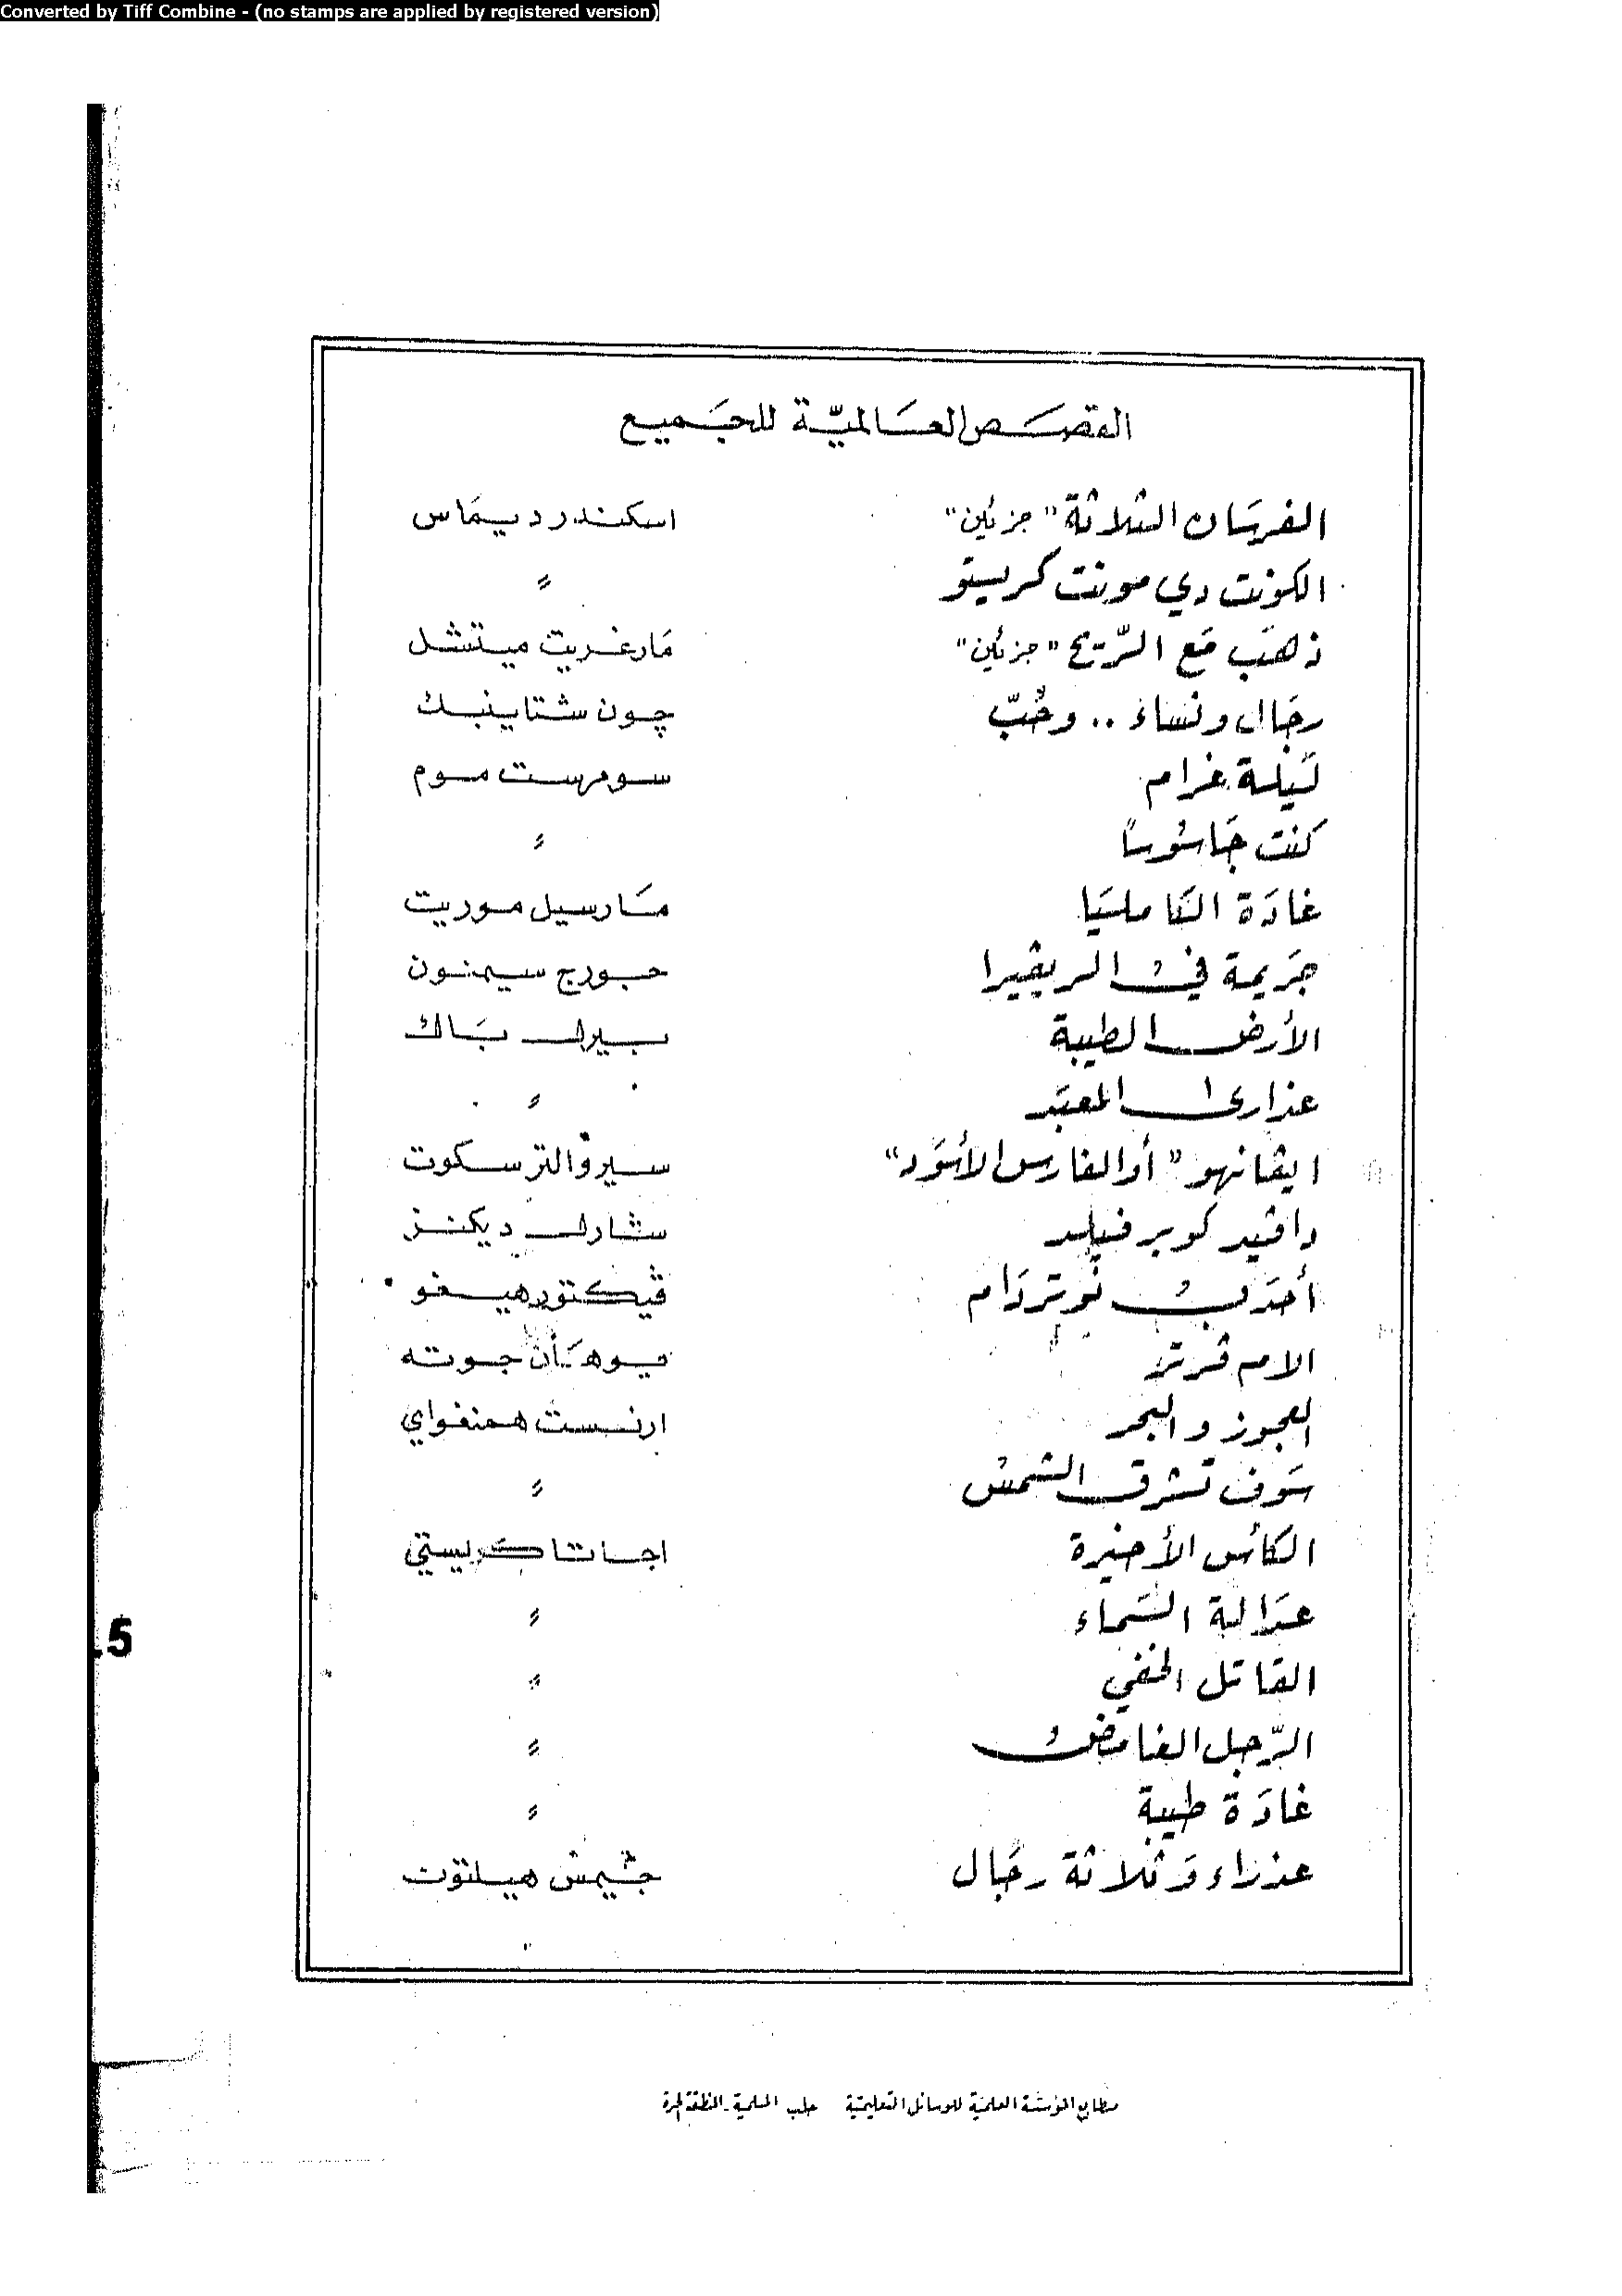 Converted by Tiff Combine - (no stamps are applied by registered version)
القصَص العَالميّة للجَميع
الفرسَان الثلاثة "جزئين" اسكندر ديمَاس
الكونت دي مونت كريستو "
ذهبَ مَع الرّيح "جزئين" مَارغريت ميتشل
رجَال ونساء .. وحُبّ چون شتاينبك
لَيلة غرام سومرست موم
كنت جَاسُوسًا "
غادَة الكَامليَا مَارسيل موريت
جَريمة في الريڤيرا جورج سيمنون
الأرض الطيبة بيرل بَاك
عذارى المعبَد "
ايڤانهو "أو الفارس الأسوَد" سير ڤالتر سكوت
داڤيد كوبر فيلد شارل ديكنز
أحدَب نُوتردَام ڤيكتور هيغو
الام ڤرتر يوهَان جوته
العجوز والبحر ارنست همنغواي
سَوف تشرق الشمسُ "
الكأس الأخيرة اجاثا كريستي
عدَالة السَماء "
القاتل الخفي "
الرّجل الغامضُ "
غادَة طيبة "
عذراء وَثلاثة رجَال جيمس هيلتون
.5
مطابع المؤسسة العلمية للوسائل التعليمية حلب المسلمية ـ المنطقة الحرة